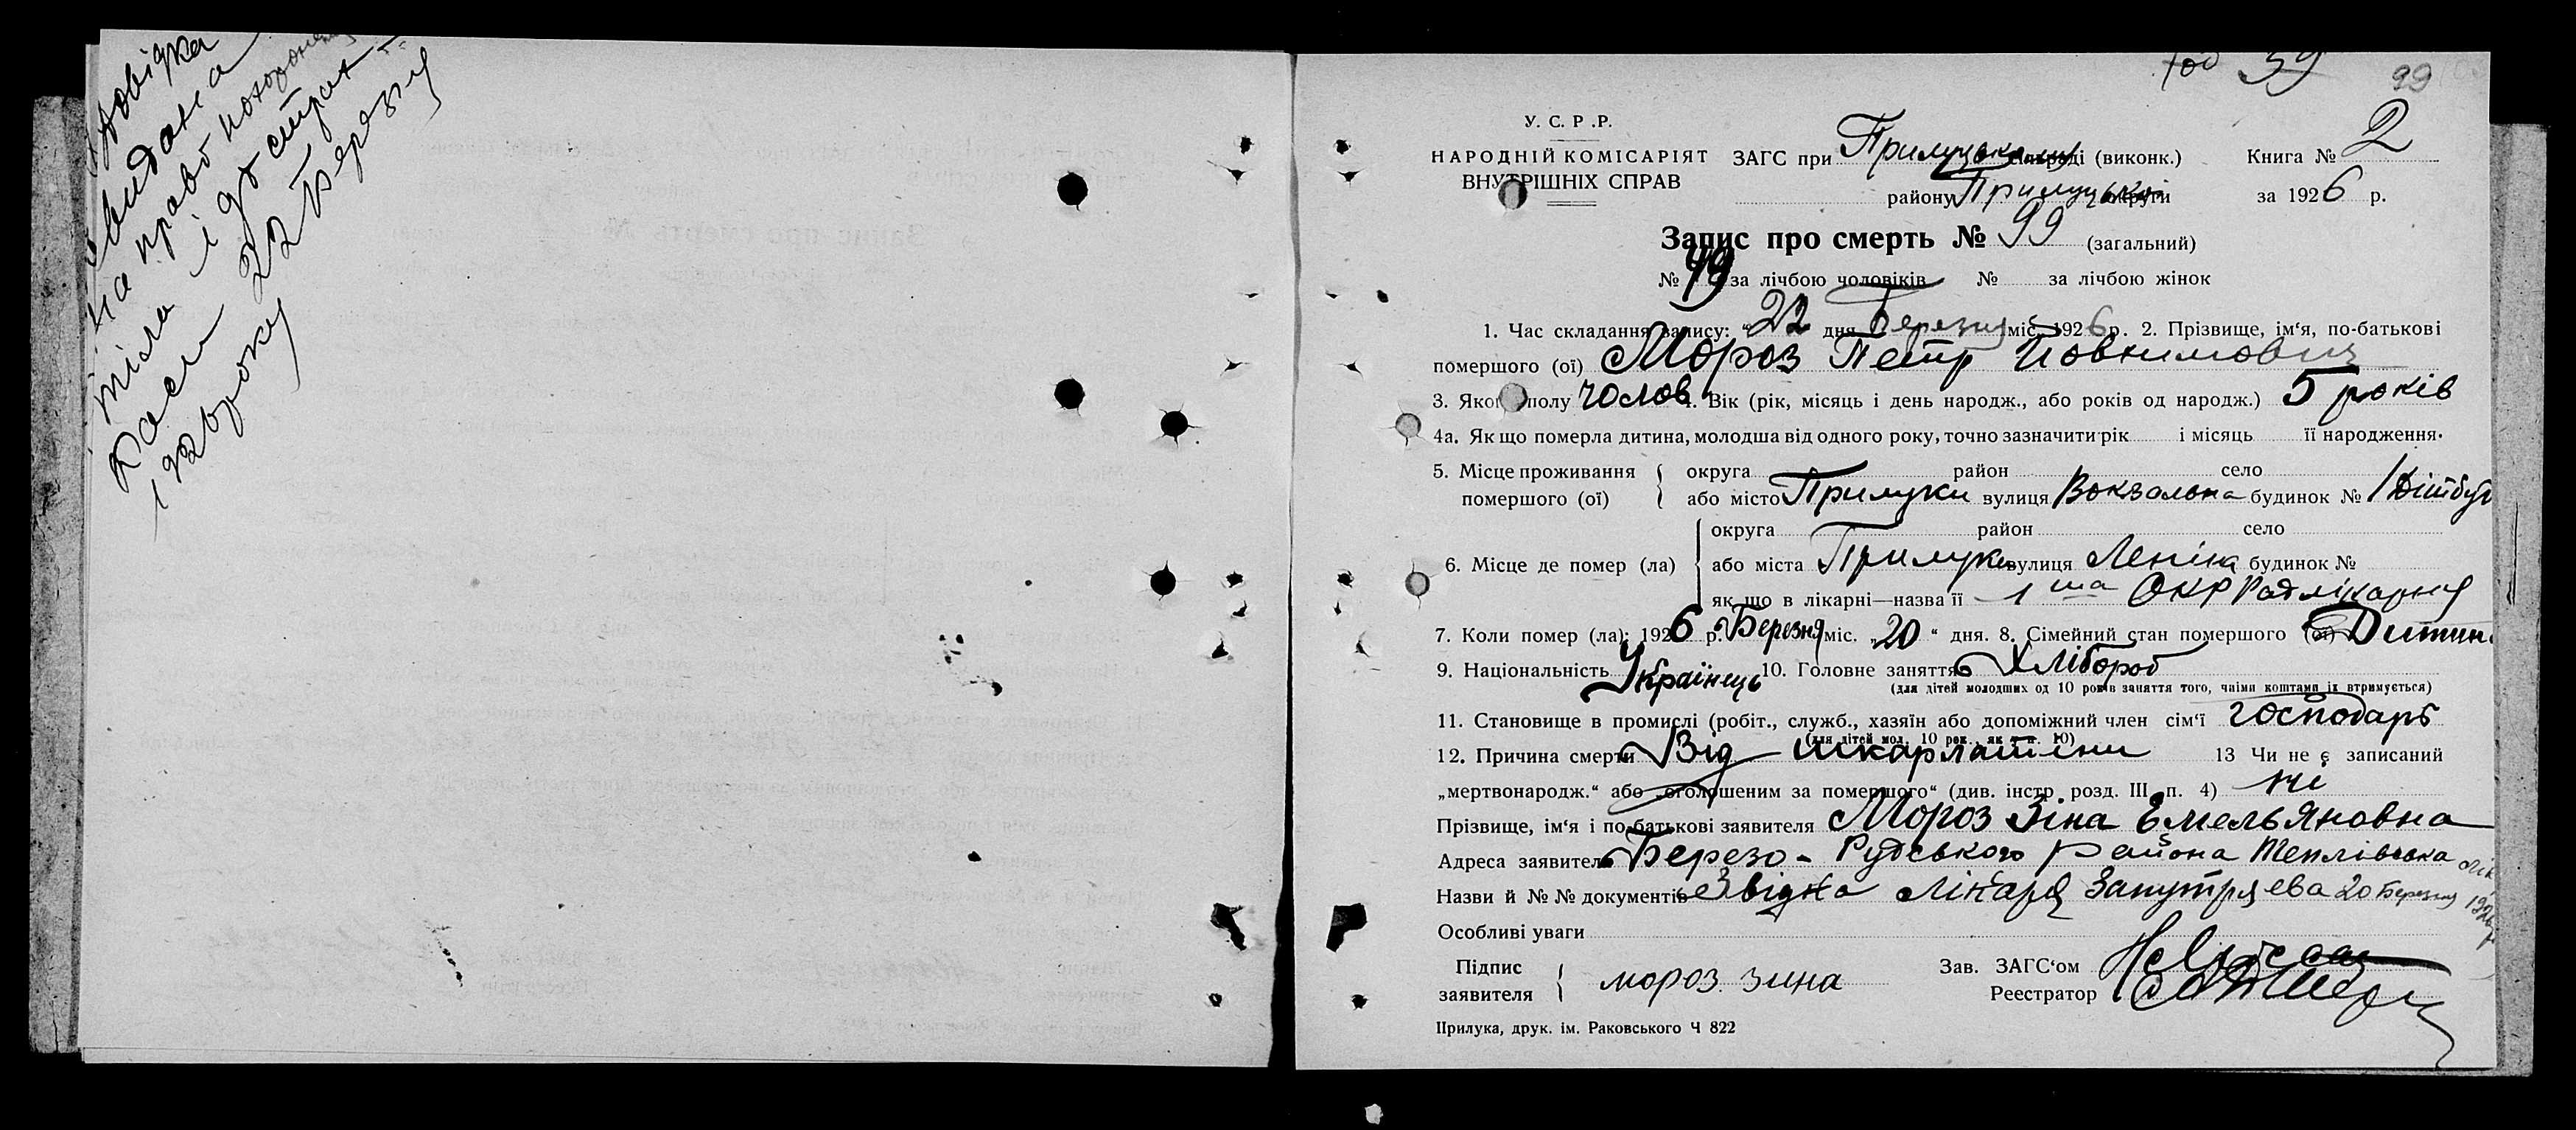 Довідка
видана
на право похорон
тіла і до страх
каси 22 березня
1926 року
99
У. С. Р. Р.
НАРОДНІЙ КОМІСАРІЯТ
ВНУТРІШНІХ СПРАВ
ЗАГС при Прилуцькому (виконк.) Книга № 2
району Прилуцької округи за 1926 р.
Запис про смерть № 99 (загальний)
№ 49 за лічбою чоловіків № за лічбою жінок
1. Час складання запису: „22 дня Березня міс. 1926 р. 2. Прізвище, ім‘я, по-батькові
помершого (ої) Мороз Петр Йовхимович
3. Якого полу чолов 4. Вік (рік, місяць і день народж., або років од народж.) 5 років
4а. Як що померла дитина, молодша від одного року, точно зазначити рік і місяць її народження.
5. Місце проживання помершого (ої) { округа район село
або місто Прилуки вулиця Вокзальна будинок № 1
6. Місце де помер (ла) { округа район село
або міста Прилуки вулиця Леніна будинок №
як що в лікарні—назва її 1ша Окр Радлікарня
7. Коли помер (ла): 1926 р. Березня міс. „20“ дня. 8. Сімейний стан помершого (ої) Дитина
9. Національність Українець 10. Головне заняття Хлібороб
(для дітей молодших од 10 років заняття того, чиїми коштами їх втримується)
11. Становище в промислі (робіт., служб., хазяїн або допоміжний член сім‘ї господарь
(для дітей мол. 10 рок., як в п. 10)
12. Причина смерти Від шкарлатіни 13 Чи не є записаний
„мертвонародж.“ або „оголошеним за помершого“ (див. інстр. розд. III п. 4) ні
Прізвище, ім‘я і по-батькові заявителя Мороз Зіна Емельяновна
Адреса заявителя Березо-Рудського района Теплівська
Назви й №№ документів Звідка лікаря 20 Березня 1926 р
Особливі уваги
Підпис заявителя { мороз зина
Зав. ЗАГС‘ом
Реестратор
Прилука, друк. ім. Раковського Ч 822